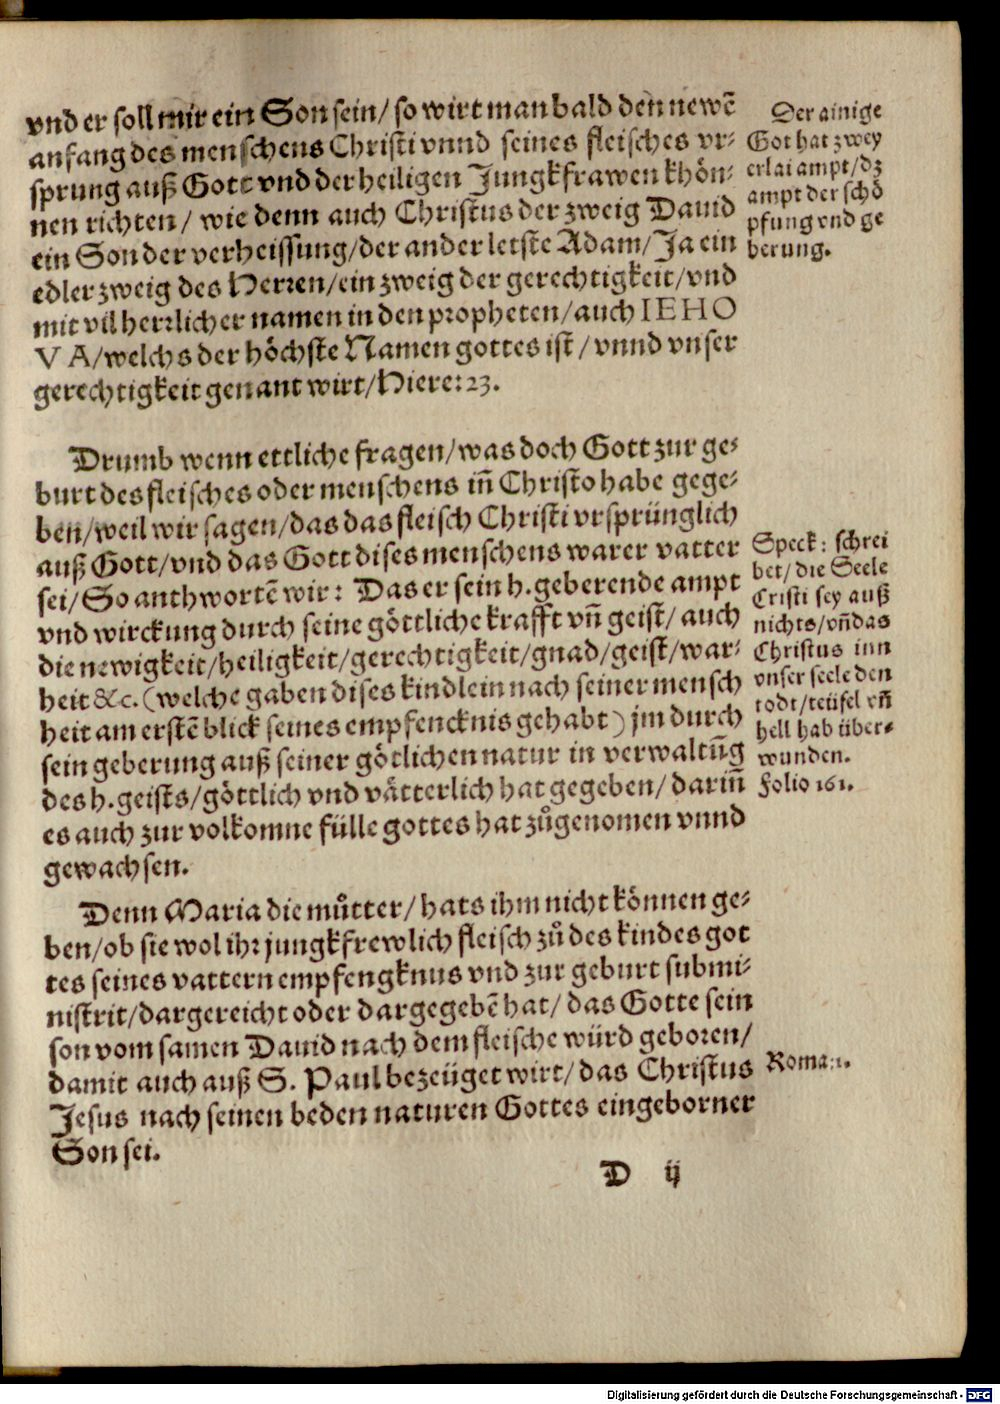 vnd er soll mir ein Son sein/ so wirt man bald den newē
anfang des menschens Christi vnnd seines fleisches vr-
sprung auß Gott vnd der heiligen Jungkfrawen khön-
nen richten/ wie denn auch Christus der zweig Dauid
ein Son der verheissung/der ander letste Adam/Ja ein
edler zweig des Herren/ein zweig der gerechtigkeit/vnd
mit vil herrlicher namen in den propheten/auch IEHO
VA/welchs der höchste Namen gottes ist/vnnd vnser
gerechtigkeit genant wirt/Hiere:23.
Der ainige
Got hat zwey
erlai ampt/dz
ampt der schö
pfung vnd ge
berung.
Drumb wenn ettliche fragen/was doch Gott zur ge-
burt des fleisches oder menschens iñ Christo habe gege-
ben/weil wir sagen/das das fleisch Christi vrsprünglich
auß Gott/vnd das Gott dises menschens warer vatter
sei/So anthwortē wir: Das er sein h.geberende ampt
vnd wirckung durch seine göttliche krafft vñ geist/ auch
die newigkeit/heiligkeit/gerechtigkeit/gnad/geist/war-
heit &c.(welche gaben dises kindlein nach seiner mensch
heit am erstē blick seines empfencknis gehabt) jm durch
sein geberung auß seiner götlichen natur in verwaltūg
des h.geists/göttlich vnd vätterlich hat gegeben/ dariñ
es auch zur volkomne fülle gottes hat zůgenomen vnnd
gewachsen.
Speck: schrei
bet/ die Seele
Cristi sey auß
nichts/vñ das
Christus inn
vnser seele den
todt/teüfel vñ
hell hab über-
wunden.
Folio 161.
Denn Maria die můtter/hats ihm nicht können ge-
ben/ob sie wol ihr jungkfrewlich fleisch zů des kindes got
tes seines vattern empfengknus vnd zur geburt submi-
nistrit/dargereicht oder dargegebē hat/ das Gotte sein
son vom samen Dauid nach dem fleische würd geboren/
damit auch auß S. Paul bezeüget wirt/das Christus
Jesus nach seinen beden naturen Gottes eingeborner
Son sei.
Roma:1.
D ij
Digitalisierung gefördert durch die Deutsche Forschungsgemeinschaft - DFG